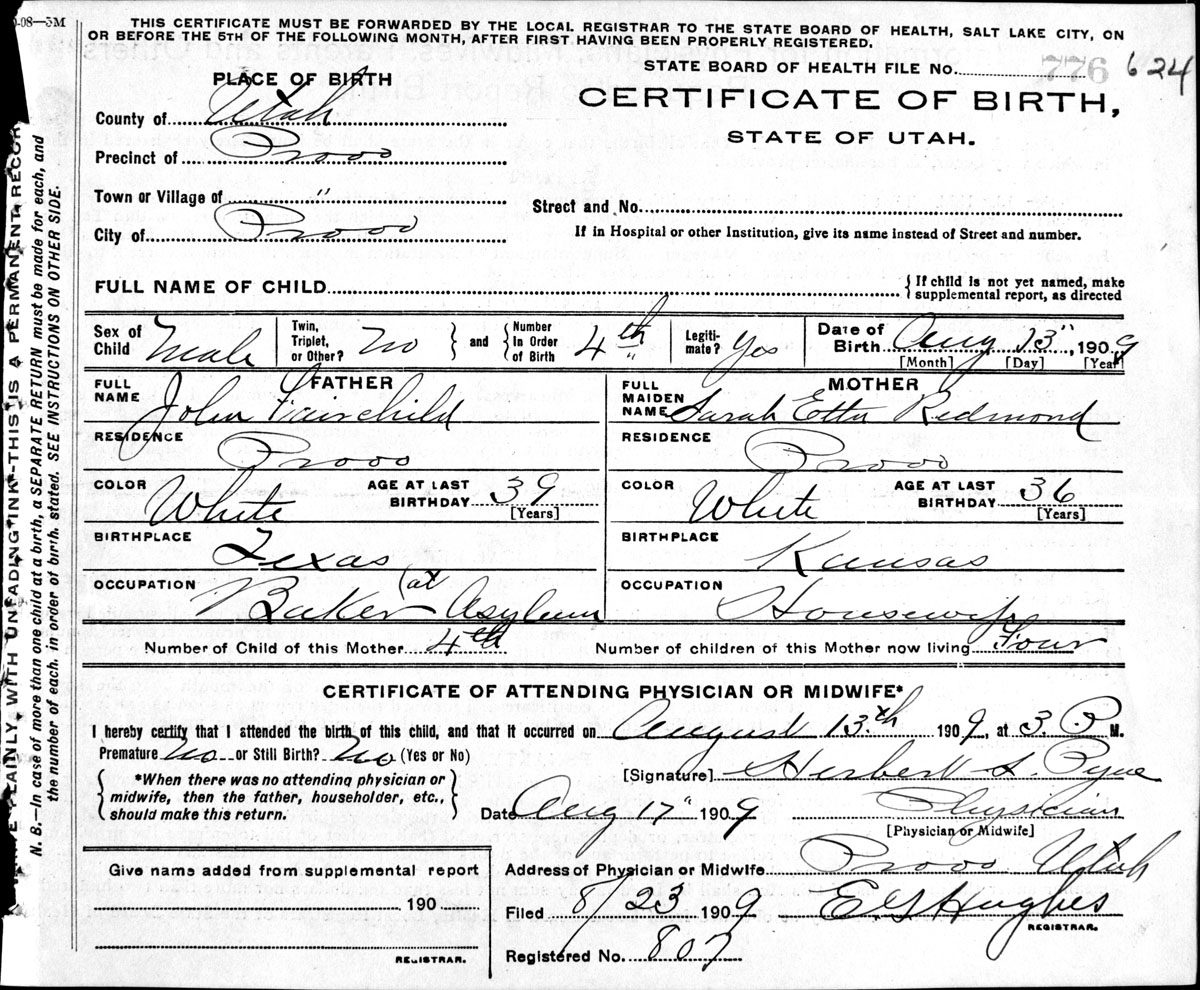 -08—5M
THIS CERTIFICATE MUST BE FORWARDED BY THE LOCAL REGISTRAR TO THE STATE BOARD OF HEALTH, SALT LAKE CITY, ON
OR BEFORE THE 5TH OF THE FOLLOWING MONTH, AFTER FIRST HAVING BEEN PROPERLY REGISTERED.
STATE BOARD OF HEALTH FILE No. 776 624
PLACE OF BIRTH
CERTIFICATE OF BIRTH,
STATE OF UTAH.
County of Utah
Precinct of Provo
Town or Village of "
City of Provo
Street and No.
If in Hospital or other Institution, give its name instead of Street and number.
FULL NAME OF CHILD
{ If child is not yet named, make
supplemental report, as directed
Sex of Child Male
Twin, Triplet, or Other? No } and { Number In Order of Birth 4th
Legiti-mate? Yes
Date of Birth Aug 13", 1909
[Month] [Day] [Year]
FATHER
FULL NAME John Fairchild
RESIDENCE Provo
COLOR White AGE AT LAST BIRTHDAY 39 [Years]
BIRTHPLACE Texas
OCCUPATION Baker (at Asylum
MOTHER
FULL MAIDEN NAME Sarah Etta Redmond
RESIDENCE Provo
COLOR White AGE AT LAST BIRTHDAY 36 [Years]
BIRTHPLACE Kansas
OCCUPATION Housewife
Number of Child of this Mother 4th Number of children of this Mother now living Four
CERTIFICATE OF ATTENDING PHYSICIAN OR MIDWIFE*
I hereby certify that I attended the birth of this child, and that it occurred on August 13th 1909, at 3 P M.
Premature No or Still Birth? No (Yes or No)
{ *When there was no attending physician or
midwife, then the father, householder, etc.,
should make this return. }
[Signature] Herbert S. Pyne
Date Aug 17" 1909 Physician
[Physician or Midwife]
Give name added from supplemental report
190
REGISTRAR.
Address of Physician or Midwife Provo Utah
Filed 8/23 1909 E G Hughes
REGISTRAR.
Registered No. 807
PLAINLY WITH UNFADING INK—THIS IS A PERMANENT RECOR
N. B.—In case of more than one child at a birth, a SEPARATE RETURN must be made for each, and
the number of each, in order of birth, stated. SEE INSTRUCTIONS ON OTHER SIDE.